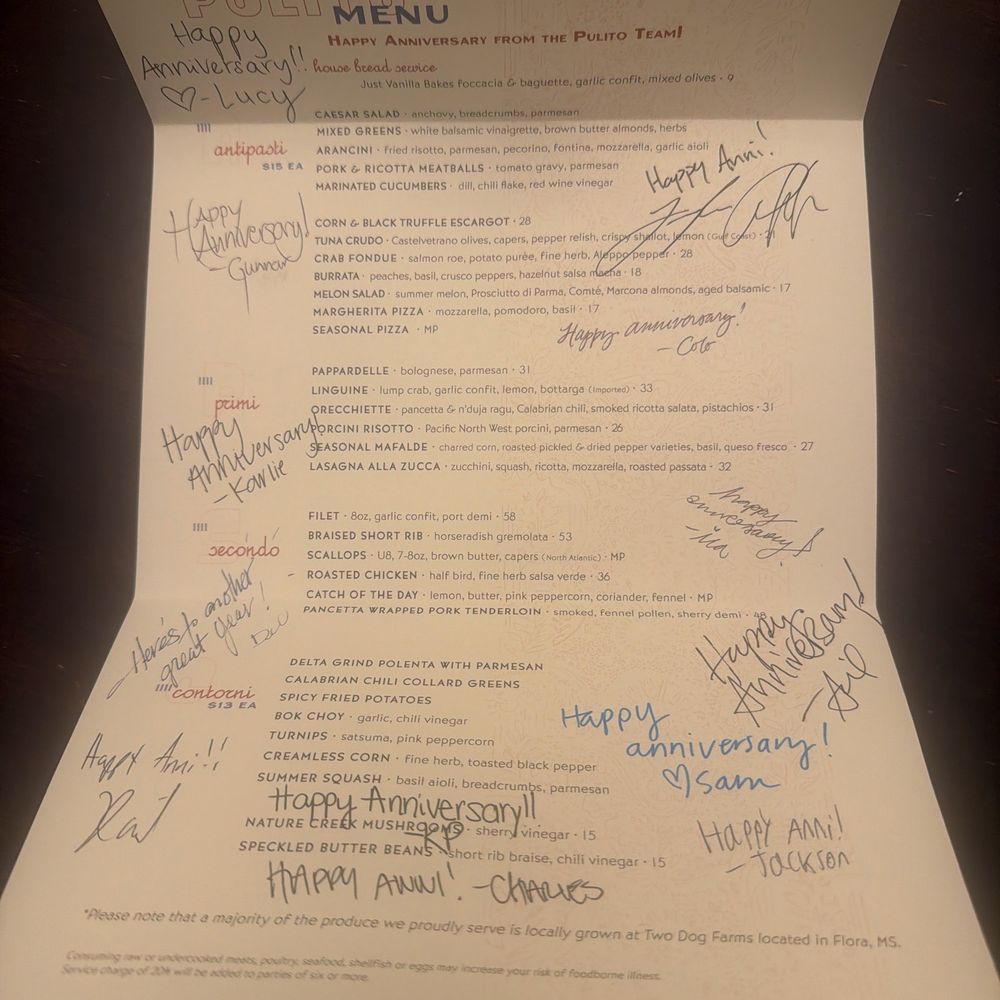 PULITO
MENU
Happy
Anniversary!!
♡-Lucy
HAPPY ANNIVERSARY FROM THE PULITO TEAM!
house bread service
Just Vanilla Bakes foccacia & baguette, garlic confit, mixed olives · 9
antipasti
$15 EA
CAESAR SALAD · anchovy, breadcrumbs, parmesan
MIXED GREENS · white balsamic vinaigrette, brown butter almonds, herbs
ARANCINI · fried risotto, parmesan, pecorino, fontina, mozzarella, garlic aioli
PORK & RICOTTA MEATBALLS · tomato gravy, parmesan
MARINATED CUCUMBERS · dill, chili flake, red wine vinegar
Happy Anni!
Happy
Anniversary!
-Gunnar
CORN & BLACK TRUFFLE ESCARGOT · 28
TUNA CRUDO · Castelvetrano olives, capers, pepper relish, crispy shallot, lemon (Gulf Coast) · 21
CRAB FONDUE · salmon roe, potato purée, fine herb, Aleppo pepper · 28
BURRATA · peaches, basil, crusco peppers, hazelnut salsa macha · 18
MELON SALAD · summer melon, Prosciutto di Parma, Comté, Marcona almonds, aged balsamic · 17
MARGHERITA PIZZA · mozzarella, pomodoro, basil · 17
SEASONAL PIZZA · MP
Happy anniversary!
- Colo
primi
PAPPARDELLE · bolognese, parmesan · 31
LINGUINE · lump crab, garlic confit, lemon, bottarga (Imported) · 33
ORECCHIETTE · pancetta & n'duja ragu, Calabrian chili, smoked ricotta salata, pistachios · 31
PORCINI RISOTTO · Pacific North West porcini, parmesan · 26
SEASONAL MAFALDE · charred corn, roasted pickled & dried pepper varieties, basil, queso fresco · 27
LASAGNA ALLA ZUCCA · zucchini, squash, ricotta, mozzarella, roasted passata · 32
Happy
Anniversary!
-Karlie
secondo
FILET · 8oz, garlic confit, port demi · 58
BRAISED SHORT RIB · horseradish gremolata · 53
SCALLOPS · U8, 7-8oz, brown butter, capers (North Atlantic) · MP
ROASTED CHICKEN · half bird, fine herb salsa verde · 36
CATCH OF THE DAY · lemon, butter, pink peppercorn, coriander, fennel · MP
PANCETTA WRAPPED PORK TENDERLOIN · smoked, fennel pollen, sherry demi · 48
happy
anniversary!
Here's to another
great year!
Happy
Anniversary!
contorni
$13 EA
DELTA GRIND POLENTA WITH PARMESAN
CALABRIAN CHILI COLLARD GREENS
SPICY FRIED POTATOES
BOK CHOY · garlic, chili vinegar
TURNIPS · satsuma, pink peppercorn
CREAMLESS CORN · fine herb, toasted black pepper
SUMMER SQUASH · basil aioli, breadcrumbs, parmesan
Happy
anniversary!
♡Sam
Happy Anni!!
Happy Anniversary!!
-KP
NATURE CREEK MUSHROOMS · sherry vinegar · 15
SPECKLED BUTTER BEANS · short rib braise, chili vinegar · 15
HAPPY ANNI!
- JACKSON
HAPPY ANNI! -CHARLES
*Please note that a majority of the produce we proudly serve is locally grown at Two Dog Farms located in Flora, MS.
Consuming raw or undercooked meats, poultry, seafood, shellfish or eggs may increase your risk of foodborne illness.
Service charge of 20% will be added to parties of six or more.